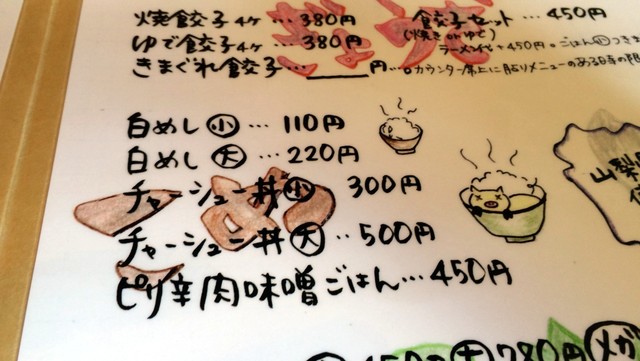 焼き餃子4ヶ…380円
ゆで餃子4ヶ…380円
きまぐれ餃子…＿＿＿円…。カウンター席上に貼りメニューのある日時の限
餃子セット…450円
(焼きorゆで)
ラーメン代+450円。ごはん小つきま
白めし小…110円
白めし大…220円
チャーシュー丼小 300円
チャーシュー丼大…500円
ピリ辛肉味噌ごはん…450円
ごめし
山梨
大 780円 メガ